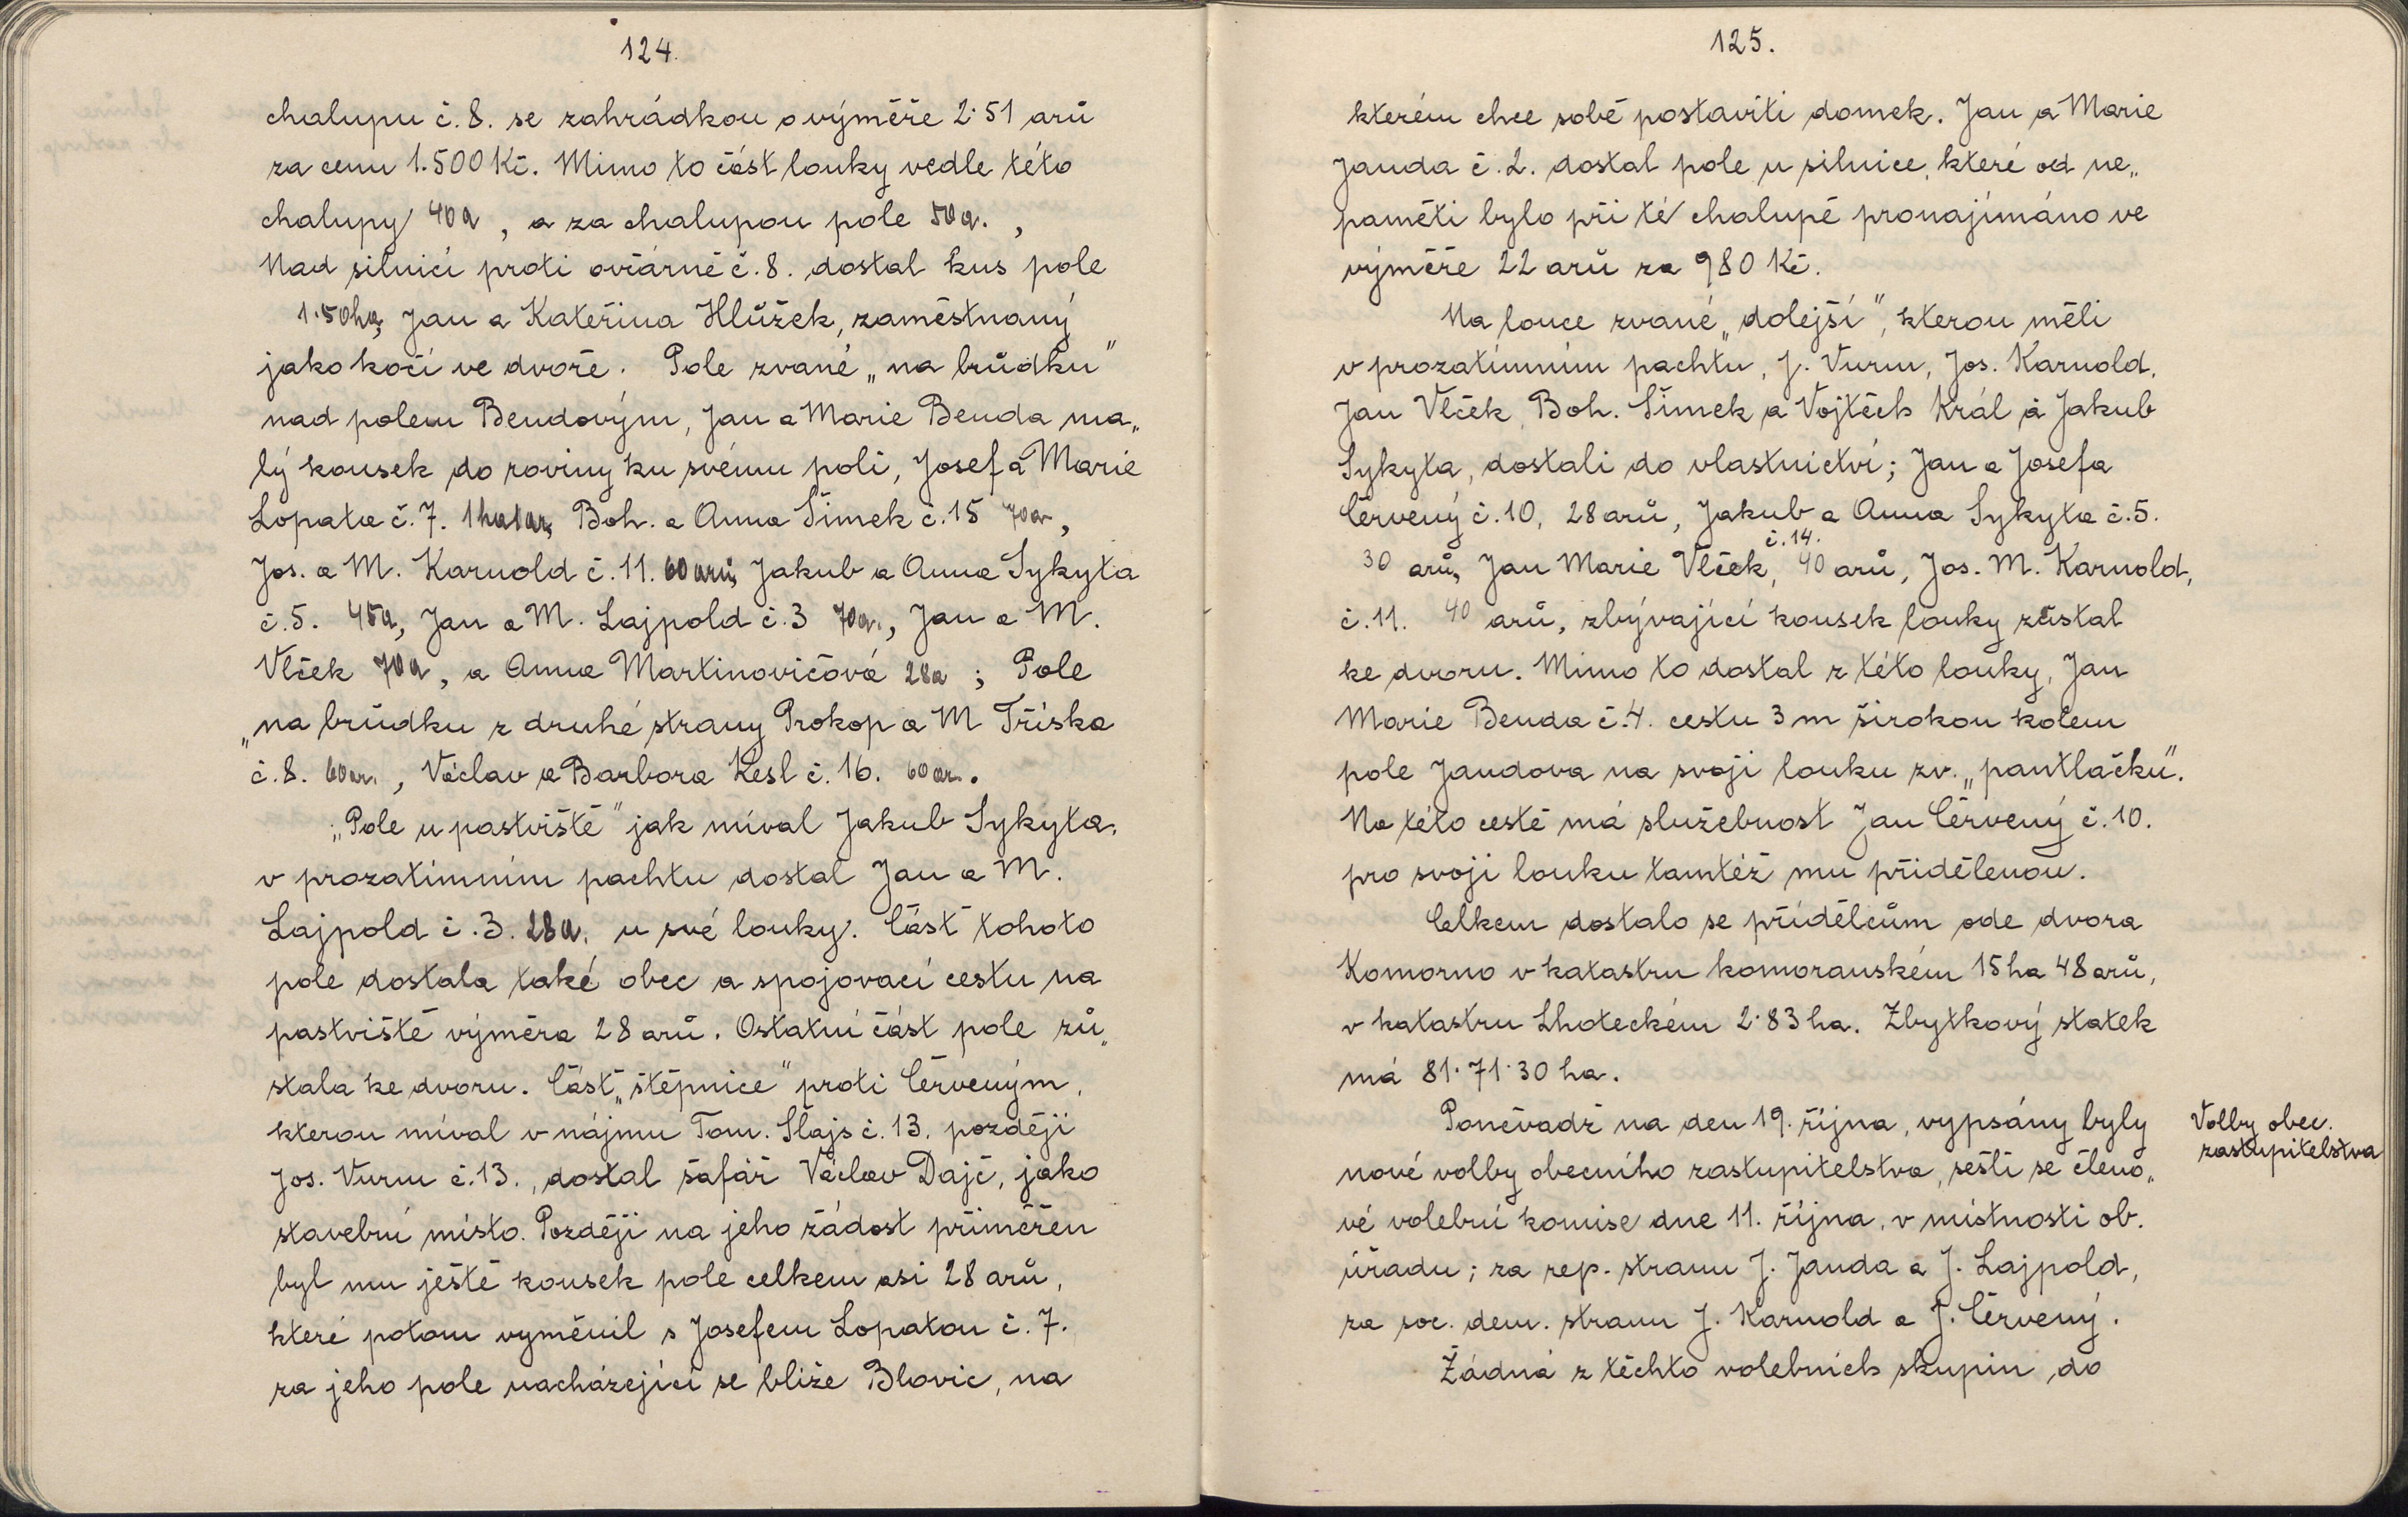 124.
chalupu č.8. se zahrádkou o výměře 2·51 arů
za cenu 1.500 Kč. Mimo to část louky vedle této
chalupy 40a, a za chalupou pole 50a.,
Nad silnicí proti ovčárně č.8. dostal kus pole
1·50ha, Jan a Kateřina Hlůžek, zaměstnaný
jako kočí ve dvoře. Pole zvané „na brůdku"
nad polem Bendovým, Jan a Marie Benda ma„
lý kousek do roviny ku svému poli, Josef a Marie
Lopata č.7. 1ha1ar, Boh. a Anna Šimek č.15 70a,
Jos. a M. Karnold č.11. 60arů, Jakub a Anna Sykyta
č.5. 45a, Jan a M. Lajpold č.3 70a., Jan a M.
Vlček 70a, a Anna Martinovičová 28a ; Pole
„na brůdku z druhé strany Prokop a M Tříska
č.8. 60ar., Václav a Barbora Kesl č.16. 60ar.
„Pole u pastviště" jak míval Jakub Sykyta,
v prozatímním pachtu dostal Jan a M.
Lajpold č.3. 28a. u své louky. Část tohoto
pole dostala také obec a spojovací cestu na
pastviště výměra 28 arů. Ostatní část pole zů„
stala ke dvoru. Část „štěpnice" proti Červeným,
kterou míval v nájmu Tom. Šlajs č.13. později
Jos. Vurm č.13., dostal šafář Václav Dajč, jako
stavební místo. Později na jeho žádost přiměřen
byl mu ještě kousek pole celkem asi 28 arů,
které potom vyměnil s Josefem Lopatou č.7.
za jeho pole nacházející se blíže Blovic, na
125.
kterém chce sobě postaviti domek. Jan a Marie
Janda č.2. dostal pole u silnice, které od ne„
paměti bylo při té chalupě pronajímáno ve
výměře 22 arů za 980 Kč.
Na louce zvané „dolejší", kterou měli
v prozatímním pachtu, J. Vurm, Jos. Karnold,
Jan Vlček, Boh. Šimek a Vojtěch Král a Jakub
Sykyta, dostali do vlastnictví; Jan a Josefa
Červený č.10, 28 arů, Jakub a Anna Sykyta č.5.
30 arů, Jan Marie Vlček, č.14. 40 arů, Jos. M. Karnold,
č.11. 40 arů, zbývající kousek louky zůstal
ke dvoru. Mimo to dostal z této louky, Jan
Marie Benda č.4. cestu 3 m širokou kolem
pole Jandova na svoji louku zv. „pantlačku".
Na této cestě má služebnost Jan Červený č.10.
pro svoji louku tamtéž mu přidělenou.
Celkem dostalo se přídělcům ode dvora
Komorno v katastru komoranském 15 ha 48 arů,
v katastru Lhoteckém 2·83 ha. Zbytkový statek
má 81·71·30 ha.
Poněvadž na den 19. října, vypsány byly
nové volby obecního zastupitelstva, sešli se členo„
vé volební komise dne 11. října, v místnosti ob.
úřadu; za rep. stranu J. Janda a J. Lajpold,
za soc. dem. stranu J. Karnold a J. Červený.
Žádná z těchto volebních skupin do
Volby obec.
zastupitelstva